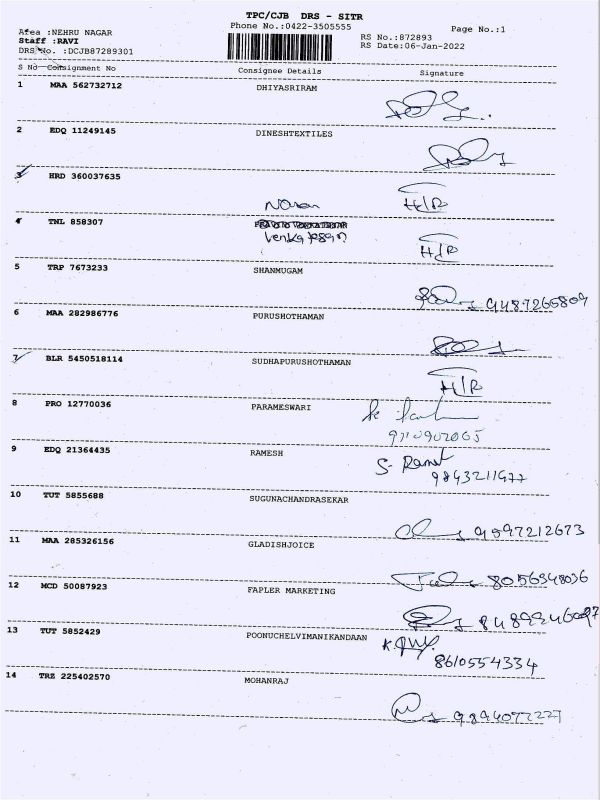 TPC/CJB DRS - SITR
Phone No.:0422-3505555
Page No.:1
Area :NEHRU NAGAR
Staff :RAVI
DRS No. :DCJB87289301
RS No.:872893
RS Date:06-Jan-2022
S No Consignment No Consignee Details Signature
1 MAA 562732712 DHIYASRIRAM
2 EDQ 11249145 DINESHTEXTILES
3 HRD 360037635
H/R
4 TNL 858307
H/R
5 TRP 7673233 SHANMUGAM
9487265809
6 MAA 282986776 PURUSHOTHAMAN
7 BLR 5450518114 SUDHAPURUSHOTHAMAN
H/R
8 PRO 12770036 PARAMESWARI
9 EDQ 21364435 RAMESH
10 TUT 5855688 SUGUNACHANDRASEKAR
9597212673
11 MAA 285326156 GLADISHJOICE
8056348036
12 MCD 50087923 FAPLER MARKETING
13 TUT 5852429 POONUCHELVIMANIKANDAAN
8610554334
14 TRZ 225402570 MOHANRAJ
9894077227